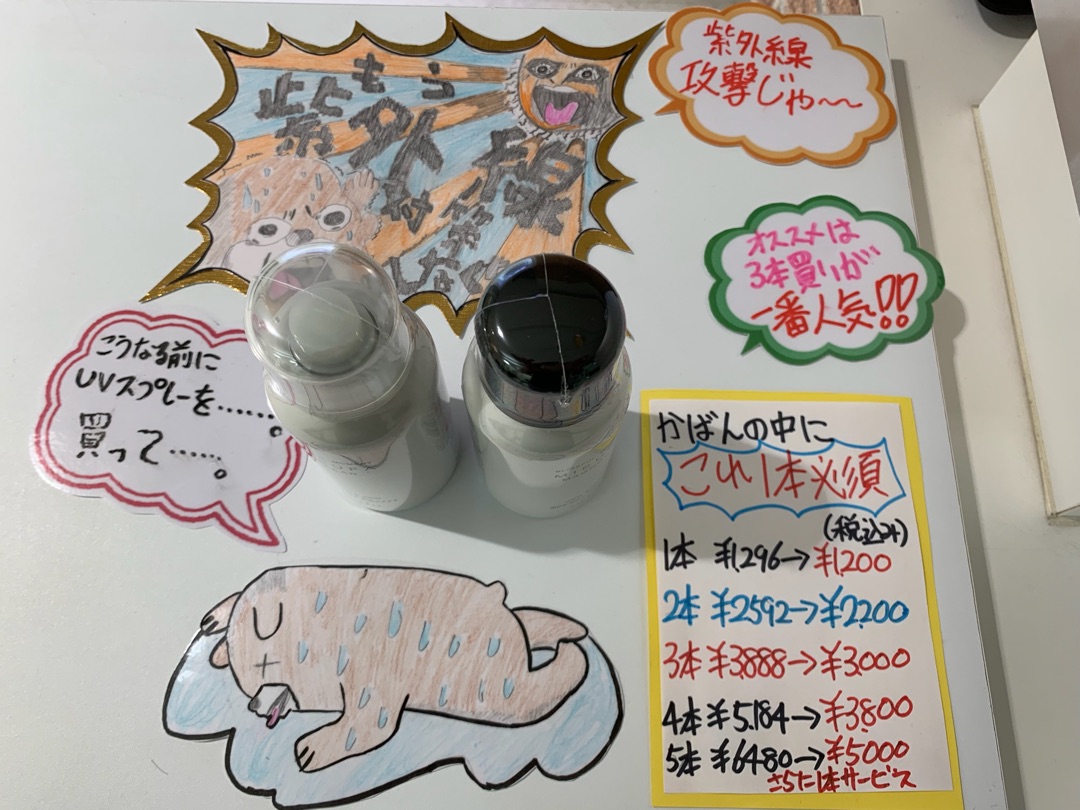 もう
紫外線
紫外線
攻撃じゃ〜
オススメは
3本買いが
一番人気!!
こうなる前に
UVスプレーを……。
買って……。
かばんの中に
これ1本必須
(税込み)
1本 ¥1,296→¥1,200
2本 ¥2592→¥2,200
3本 ¥3,888→¥3,000
4本 ¥5,184→¥3,800
5本 ¥6480→¥5,000
さらに1本サービス